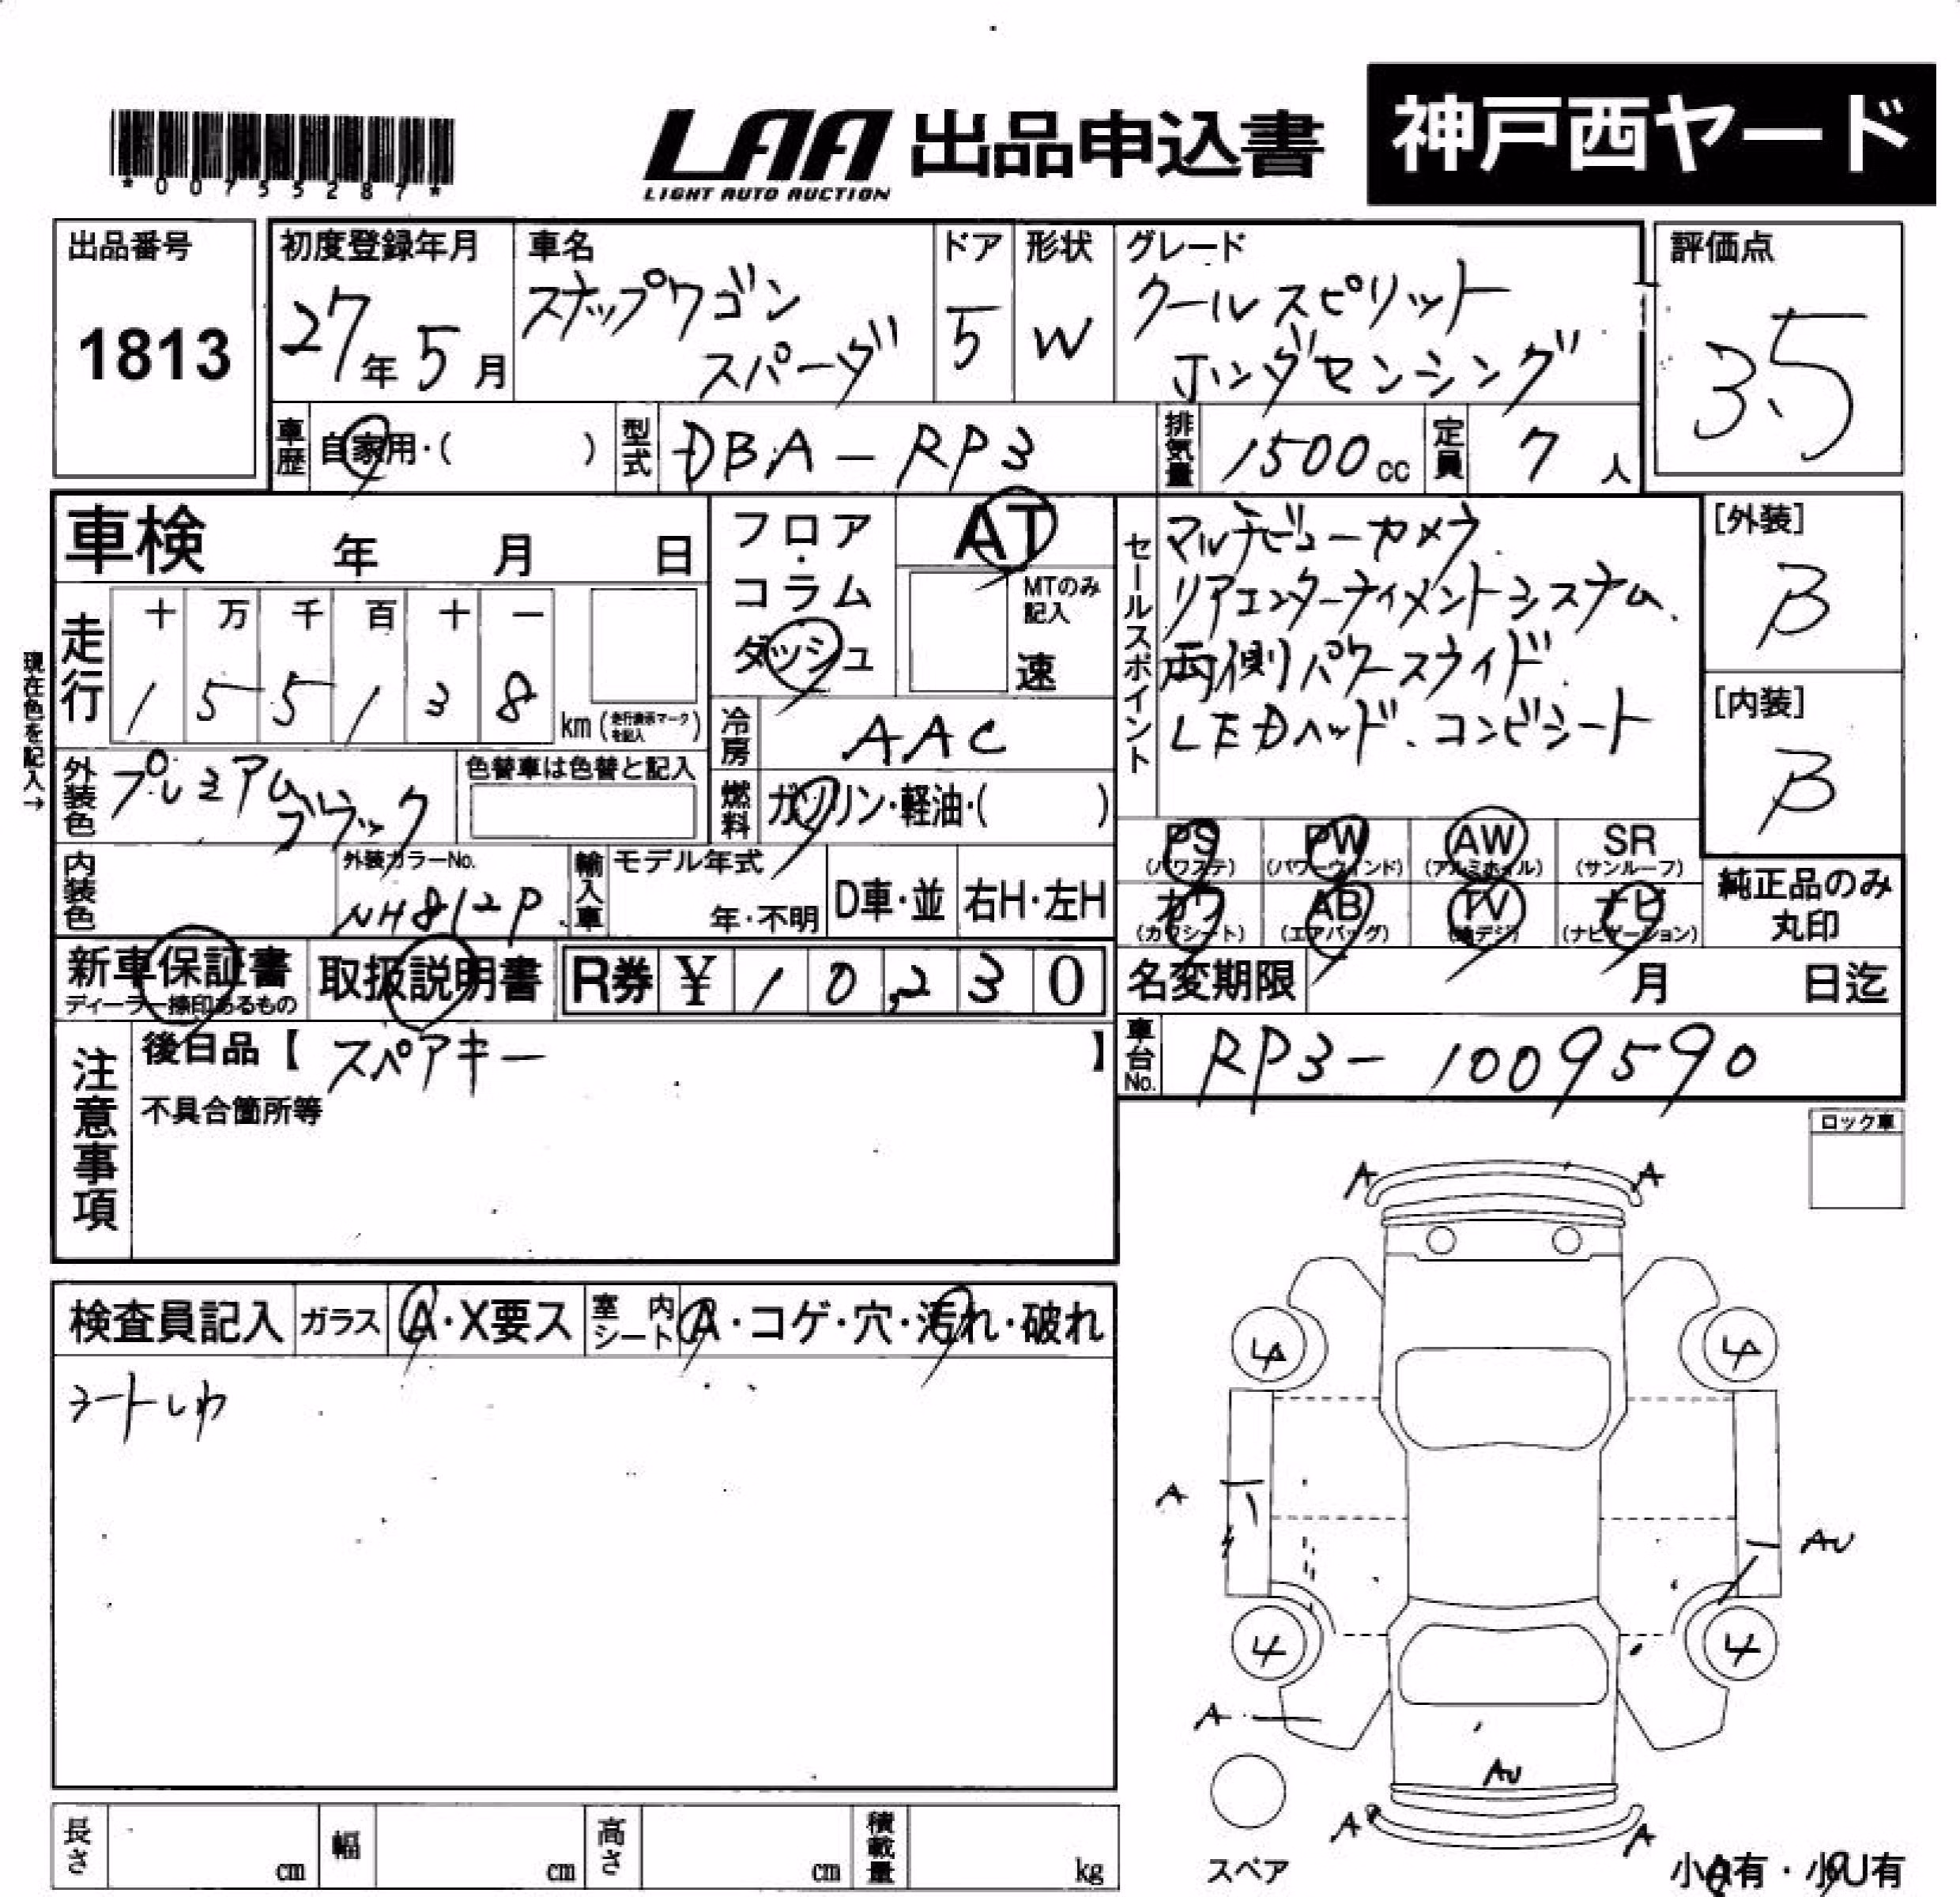 LAA 出品申込書 神戸西ヤード
LIGHT AUTO AUCTION
*00755287*
出品番号 初度登録年月 車名 ドア 形状 グレード 評価点
1813 27年5月 ステップワゴン スパーダ 5 W クールスピリット ホンダセンシング 3.5
車歴 自家用・( ) 型式 DBA-RP3 排気量 1500cc 定員 7人
車検 年 月 日
フロア・コラム ダッシュ AT
MTのみ記入 速
現在色を記入→
走行 十 万 千 百 十 一
1 5 5 1 3 8 km(走行表示マークを記入)
冷房 AAC
燃料 ガソリン・軽油・( )
セールスポイント
マルチビューカメラ.
リアエンターテイメントシステム.
両側パワースライド.
LEDヘッド.コンビシート
[外装]
B
[内装]
B
外装色 プレミアムブラック 色替車は色替と記入
内装色 外装カラーNo. NH812P. 輸入車 モデル年式 年・不明 D車・並 右H・左H
PS (パワステ) PW (パワーウィンド) AW (アルミホイル) SR (サンルーフ)
カワ (カワシート) AB (エアバッグ) TV (地デジ) ナビ (ナビゲーション)
純正品のみ丸印
新車保証書 ディーラー捺印あるもの 取扱説明書 R券 ¥ 10,230
名変期限 月 日迄
車台No. RP3-1009590
注意事項 後日品【 スペアキー 】
不具合箇所等
ロック車
A A
検査員記入 ガラス A・X要ス 室内シート A・コゲ・穴・汚れ・破れ
シートしわ
4 4
A AU
4 4
A
AU
A A
スペア
小A有・小U有
長さ cm 幅 cm 高さ cm 積載量 kg